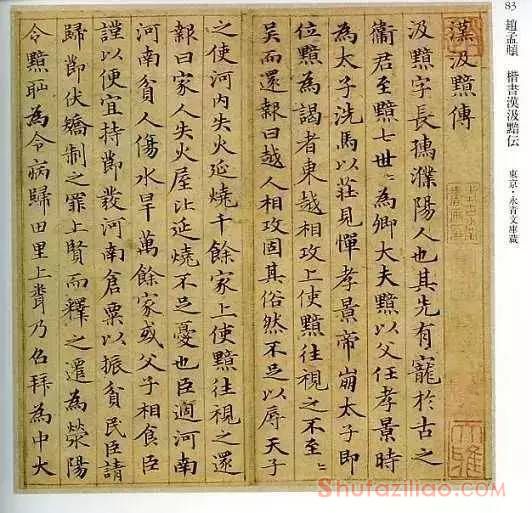 83 趙孟頫 楷書漢汲黯伝 東京・永青文庫蔵
漢汲黯傳
汲黯字長孺濮陽人也其先有寵於古之
衛君至黯七世〻為卿大夫黯以父任孝景時
為太子洗馬以莊見憚孝景帝崩太子即
位黯為謁者東越相攻上使黯往視之不至〻
吳而還報曰越人相攻固其俗然不足以辱天子
之使河内失火延燒千餘家上使黯往視之還
報曰家人失火屋比延燒不足憂也臣適河南
河南貧人傷水旱萬餘家或父子相食臣
謹以便宜持節發河南倉粟以振貧民臣請
歸節伏矯制之罪上賢而釋之遷為滎陽
令黯恥為令病歸田里上聞乃召拜為中大
Shufaziliao.com